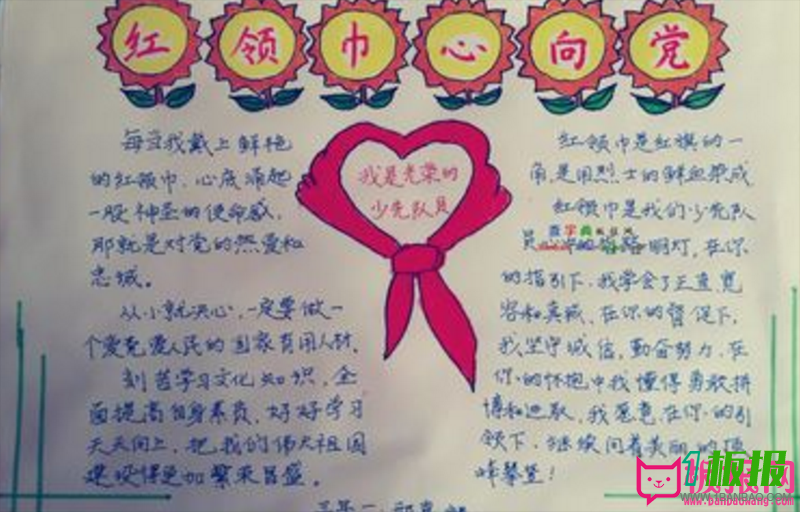 红领巾心向党
每当我戴上鲜艳
的红领巾，心底涌起
一股神圣的使命感，
那就是对党的热爱和
忠诚。
从小就决心，一定要做一
个爱党爱人民的国家有用人材，
刻苦学习文化知识，全
面提高自身素质，好好学习
天天向上，把我的伟大祖国
建设得更加繁荣昌盛。
我是光荣的
少先队员
红领巾是红旗的一
角，是用烈士的鲜血染成
红领巾是我们少先队
员 明灯，在你
的指引下，我学会了正直宽
容和真诚，在你的督促下，
我坚守诚信，勤奋努力，在
你的怀抱中我懂得勇敢拼
博和进取，我愿意在你的引
领下，继续向着美丽的顶
峰攀登！
三年一
板报
WWW.1BANBAO.COM
www.banbaowang.com